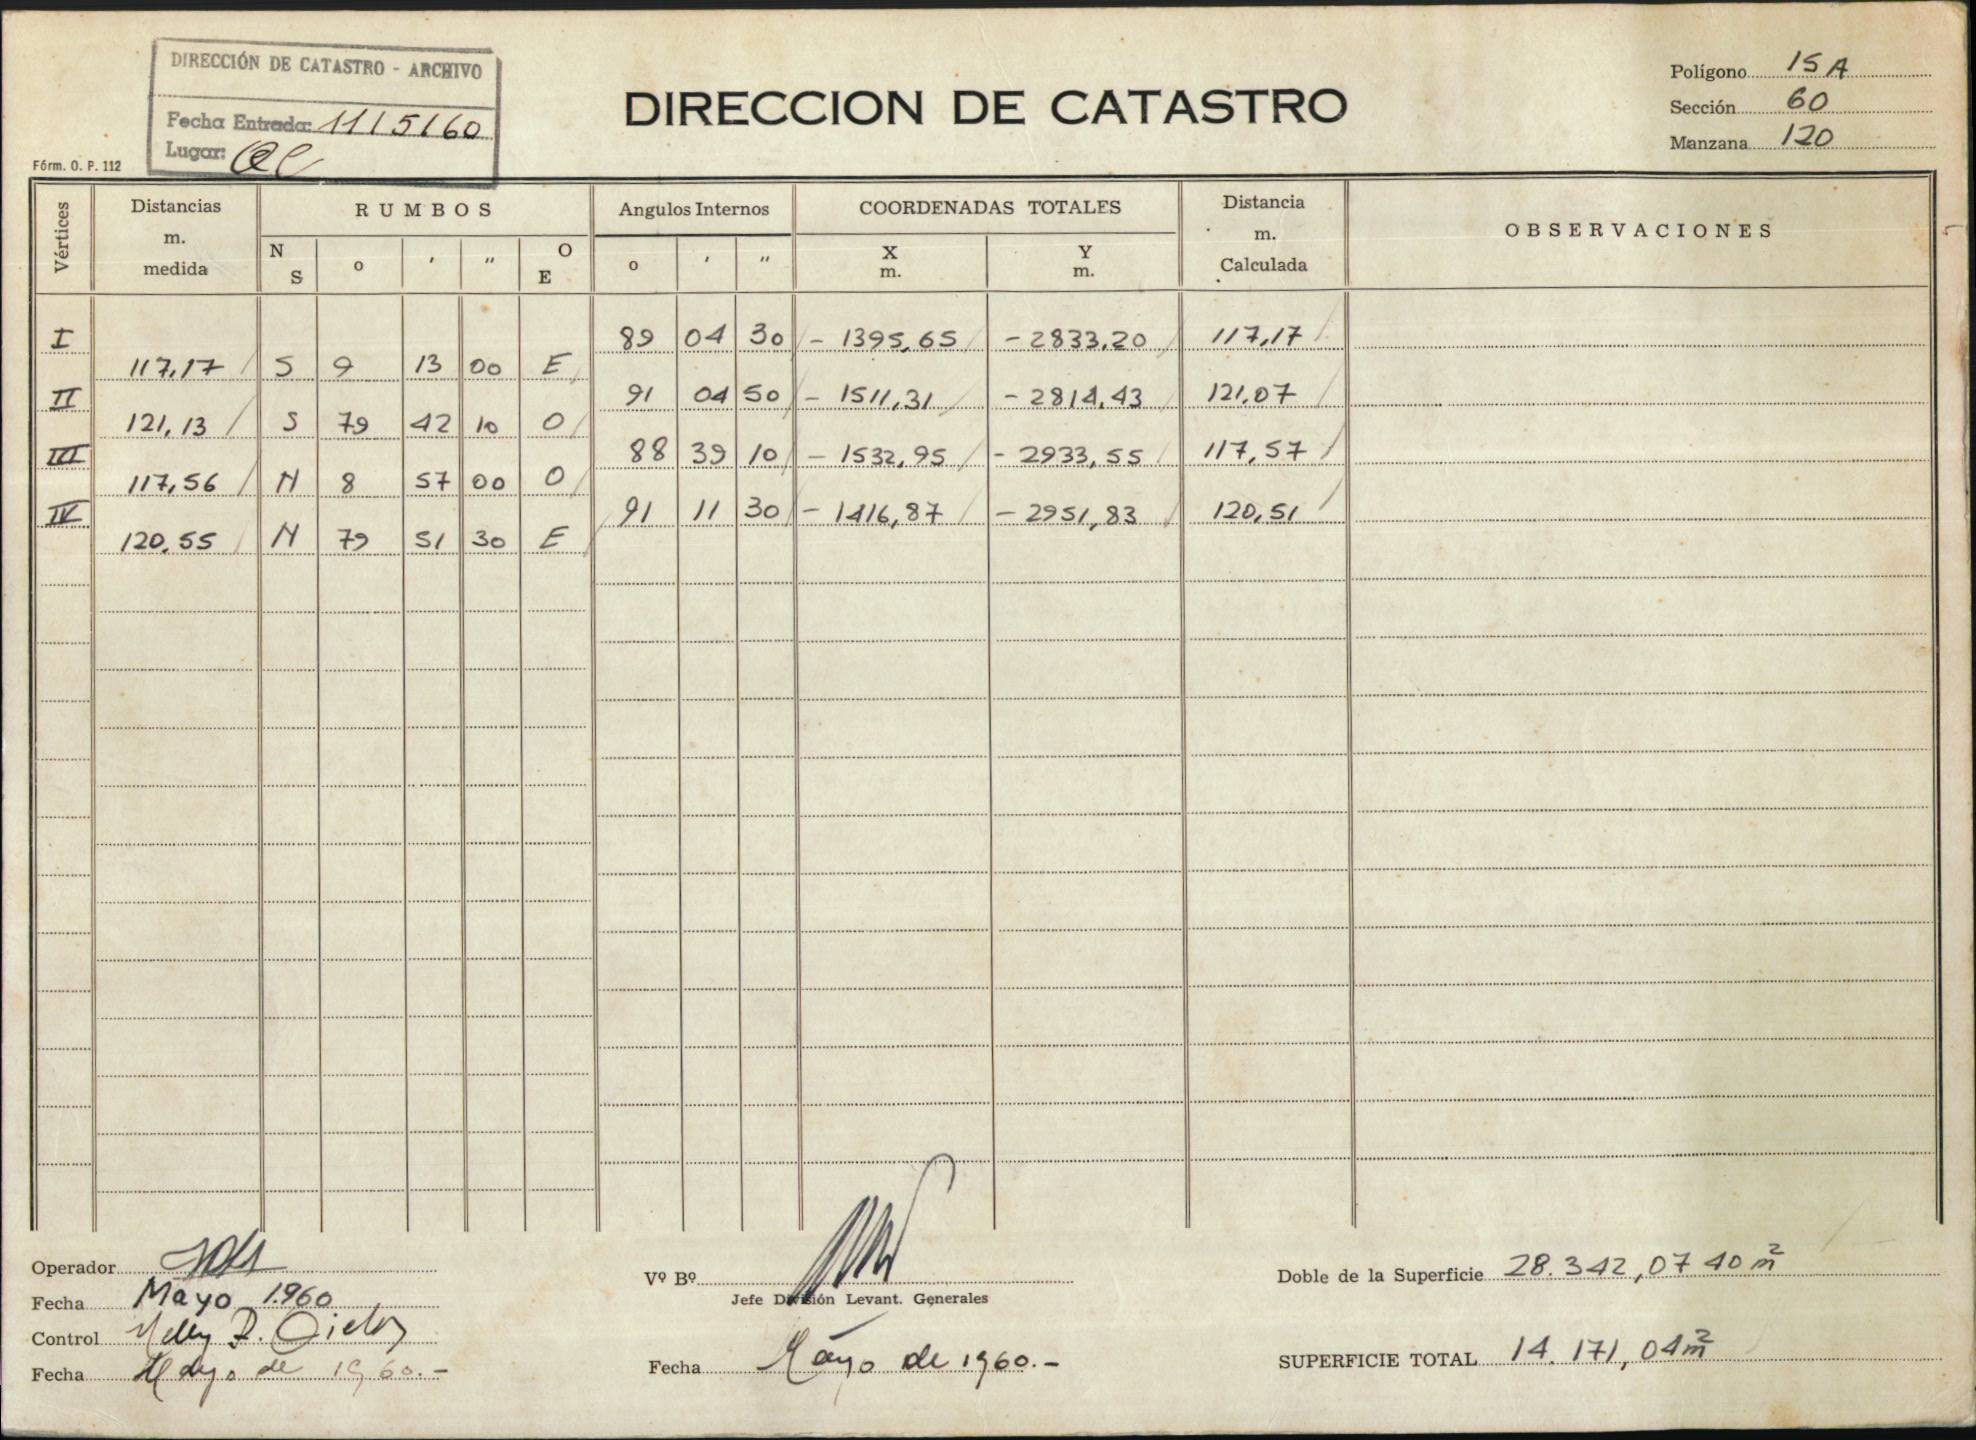 DIRECCIÓN DE CATASTRO - ARCHIVO
Fecha Entrada: 11/5/60
Lugar:
Fórm. O. P. 112
DIRECCION DE CATASTRO
Polígono 15 A
Sección 60
Manzana 120
Vértices Distancias m. medida RUMBOS N S o ' " O E Angulos Internos o ' " COORDENADAS TOTALES X m. Y m. Distancia m. Calculada OBSERVACIONES
I 89 04 30 - 1395,65 - 2833,20 117,17
117,17 S 9 13 00 E
II 91 04 50 - 1511,31 - 2814,43 121,07
121,13 S 79 42 10 O
III 88 39 10 - 1532,95 - 2933,55 117,57
117,56 N 8 57 00 O
IV 91 11 30 - 1416,87 - 2951,83 120,51
120,55 N 79 51 30 E
Operador
Fecha Mayo 1.960
Control Nelly
Fecha Mayo de 1960.-
Vº Bº
Jefe División Levant. Generales
Fecha Mayo de 1960.-
Doble de la Superficie 28.342,0740 m²
SUPERFICIE TOTAL 14.171,04 m²